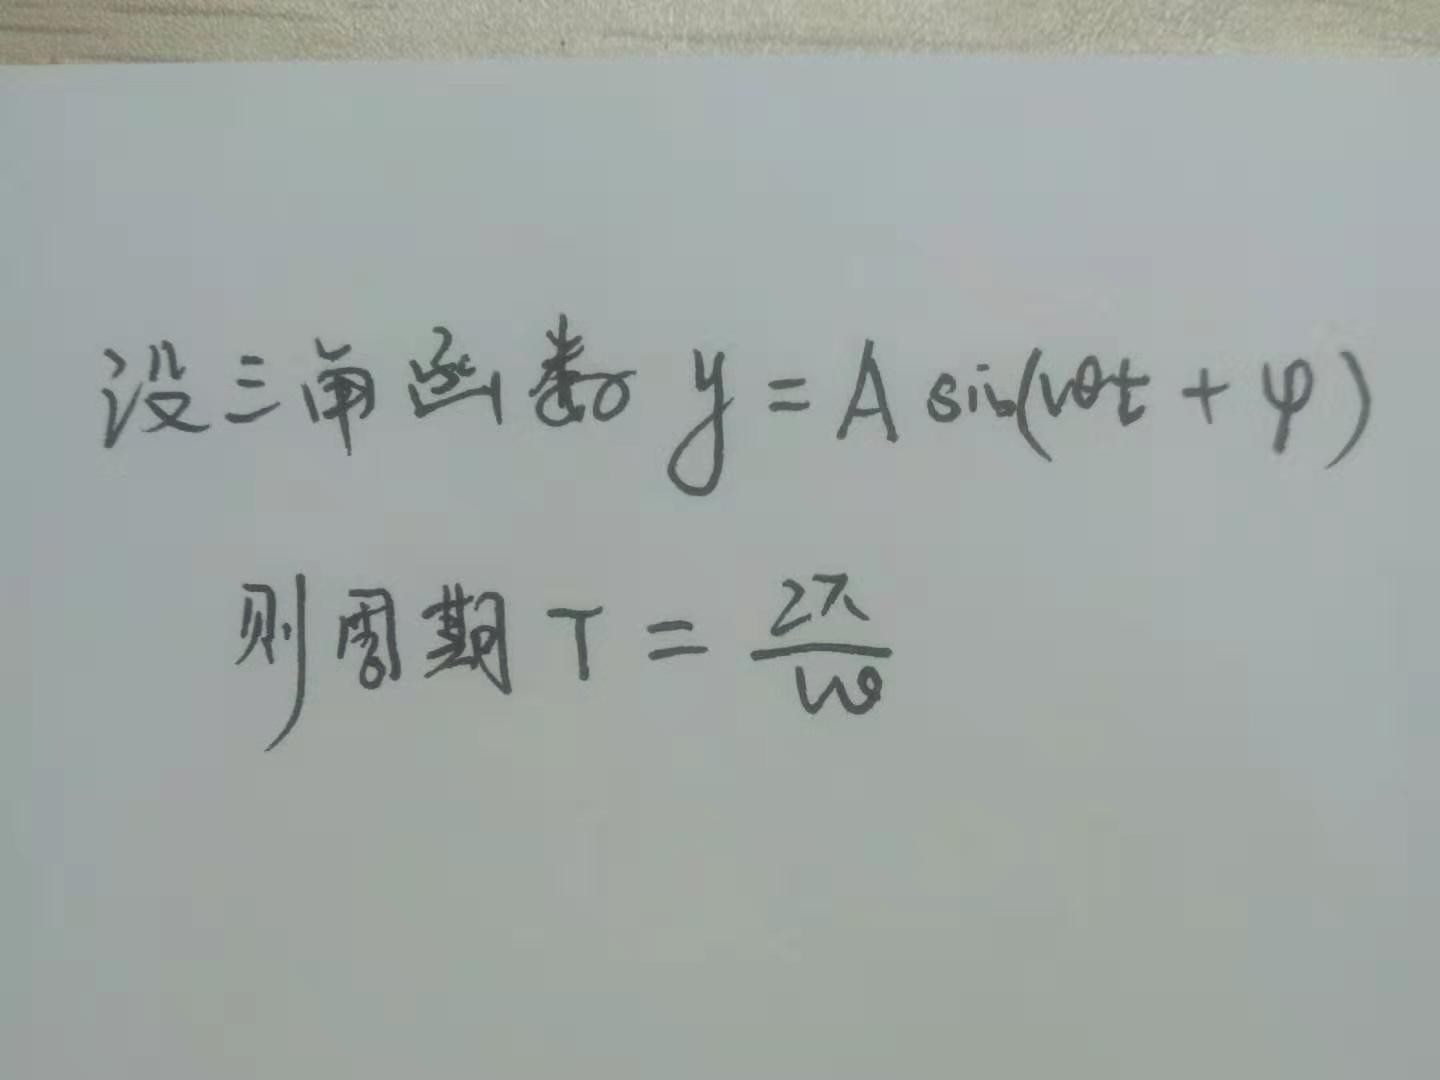 设三角函数 y = A sin(ωt + φ)
则周期 T = 2π/ω